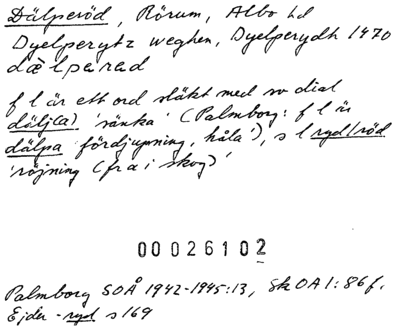 Dälperöd, Rörum, Albo hd
Dyelperytz weghen, Dyelperydh 1470
dælparad
f l är ett ord släkt med sv dial
dälj(a) 'sänka' (Palmborg: f l är
dälpa 'fördjupning, håla'), s l ryd/röd
'röjning (fra i skog)'
00026102
Palmborg SOÅ 1942-1945:13, Sk OA 1:86 f.
Ejder -ryd s 169